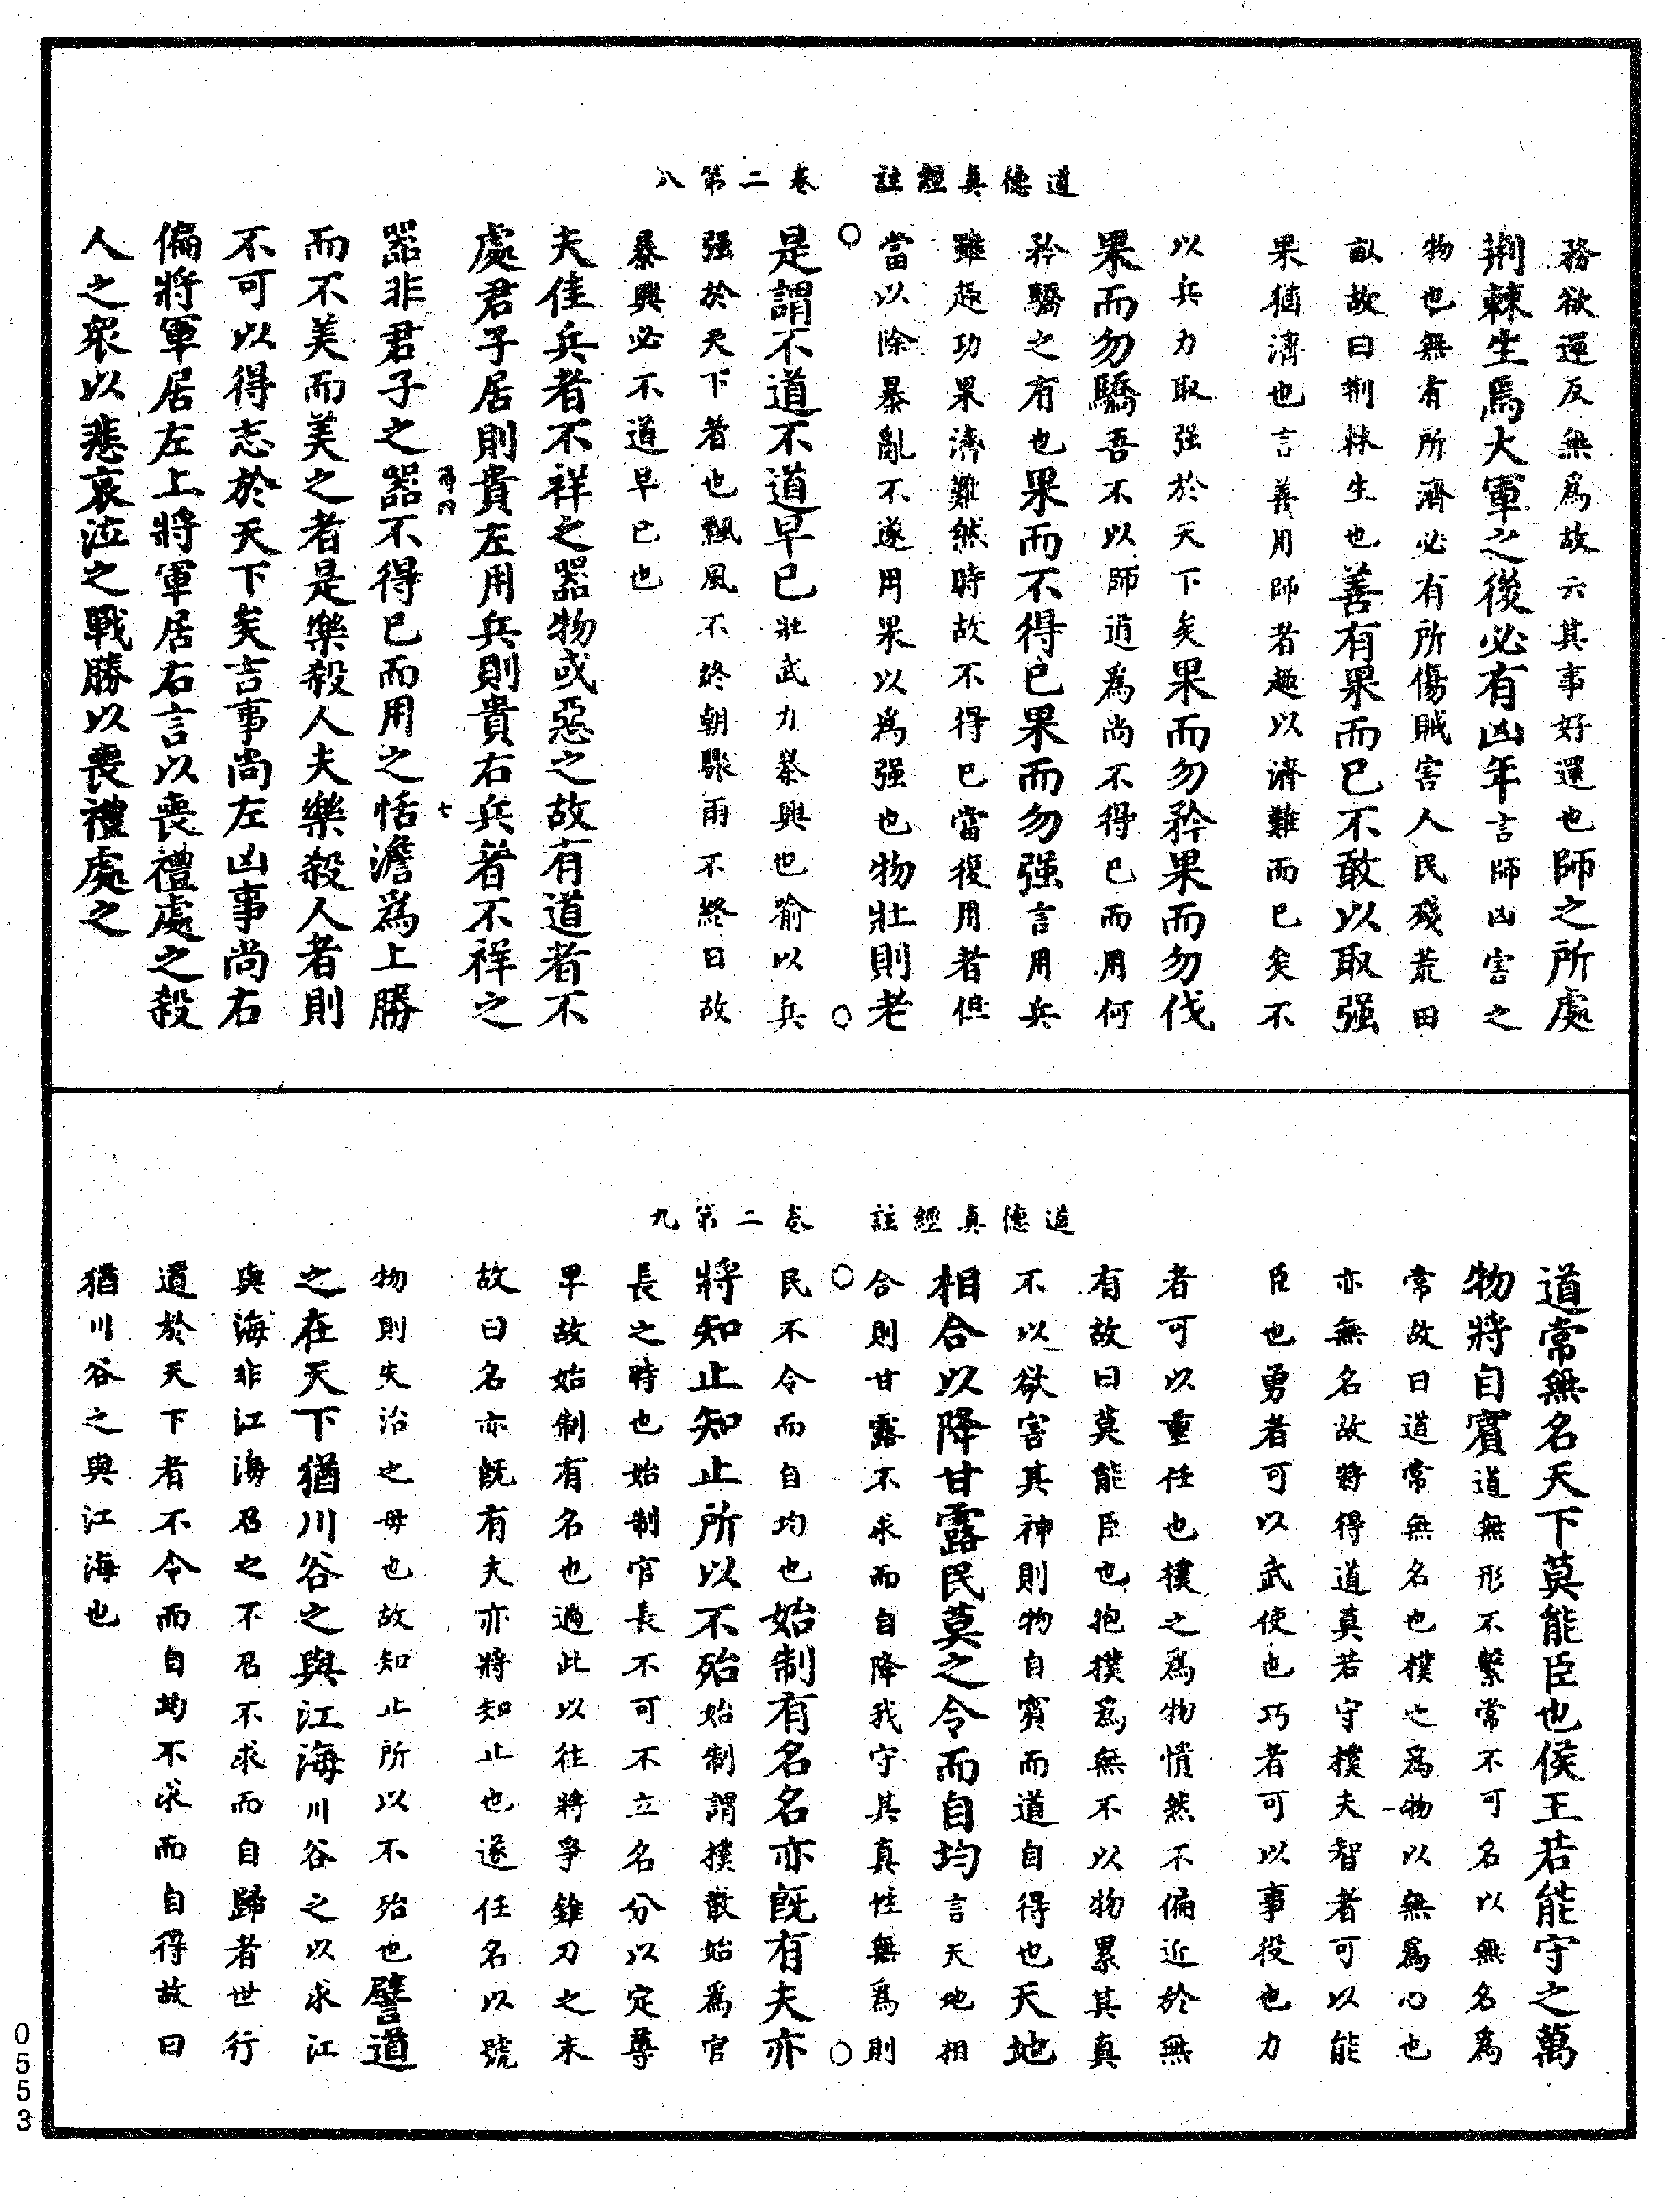 道德真經註　卷二第八
務欲還反無為故云其事好還也師之所處
荆棘生焉大軍之後必有凶年言師凶害之
物也無有所濟必有所傷賊害人民殘荒田
畝故曰荆棘生也善有果而已不敢以取强
果猶濟也言善用師者趣以濟難而已矣不
以兵力取强於天下矣果而勿矜果而勿伐
果而勿驕吾不以師道為尚不得已而用何
矜驕之有也果而不得已果而勿强言用兵
雖趣功果濟難然時故不得已當復用者但
當以除暴亂不遂用果以為强也物壯則老
是謂不道不道早已壯武力暴興也喻以兵
强於天下者也飄風不終朝驟雨不終日故
暴興必不道早已也
夫佳兵者不祥之器物或惡之故有道者不
處君子居則貴左用兵則貴右兵者不祥之
七
器非君子之器不得已而用之恬澹為上勝
而不美而美之者是樂殺人夫樂殺人者則
不可以得志於天下矣吉事尚左凶事尚右
偏將軍居左上將軍居右言以喪禮處之殺
人之衆以悲哀泣之戰勝以喪禮處之
道德真經註　卷二第九
道常無名天下莫能臣也侯王若能守之萬
物將自賓道無形不繫常不可名以無名為
常故曰道常無名也樸之為物以無為心也
亦無名故將得道莫若守樸夫智者可以能
臣也勇者可以武使也巧者可以事役也力
者可以重任也樸之為物憒然不偏近於無
有故曰莫能臣也抱樸為無不以物累其真
不以欲害其神則物自賓而道自得也天地
相合以降甘露民莫之令而自均言天地相
合則甘露不求而自降我守其真性無為則
民不令而自均也始制有名名亦既有夫亦
將知止知止所以不殆始制謂樸散始為官
長之時也始制官長不可不立名分以定尊
卑故始制有名也過此以往將爭錐刀之末
故曰名亦既有夫亦將知止也遂任名以號
物則失治之母也故知止所以不殆也譬道
之在天下猶川谷之與江海川谷之以求江
與海非江海召之不召不求而自歸者世行
道於天下者不令而自均不求而自得故曰
猶川谷之與江海也
0553